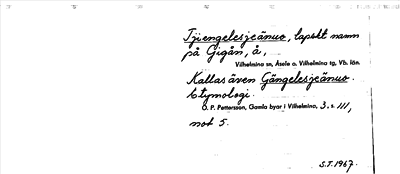 Tjiengelesjeänuo, lapskt namn
på Gigån, å,
Vilhelmina sn, Åsele o. Vilhelmina tg, Vb. län.
Kallas även Gängelesjeänuo.
Etymologi.
O. P. Pettersson, Gamla byar i Vilhelmina, 3. s. 111,
not 5.
S.T. 1967.